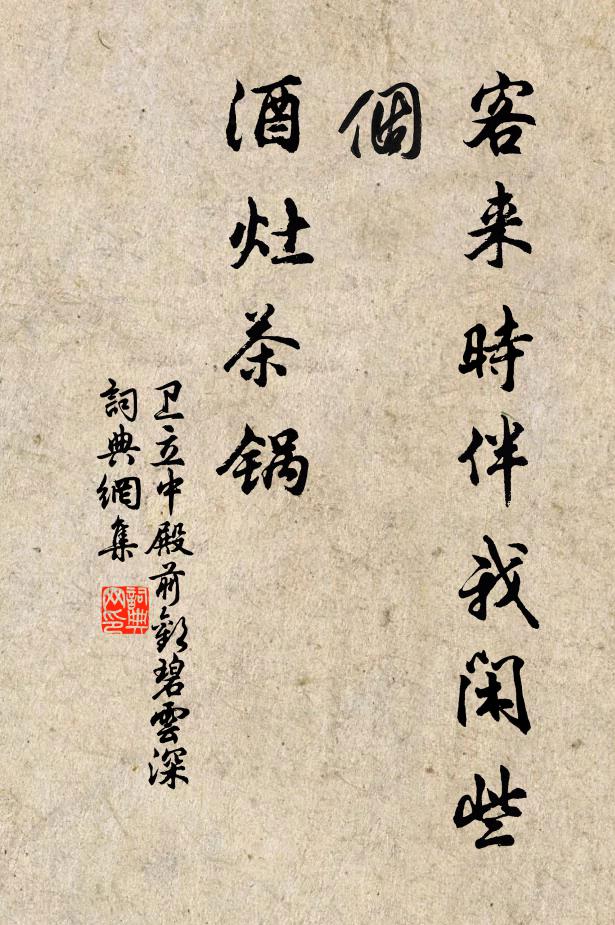 客来時伴我閑些
個
酒灶茶锅
卫立中殿前歡碧雲深
詞典網集
詞典
网印